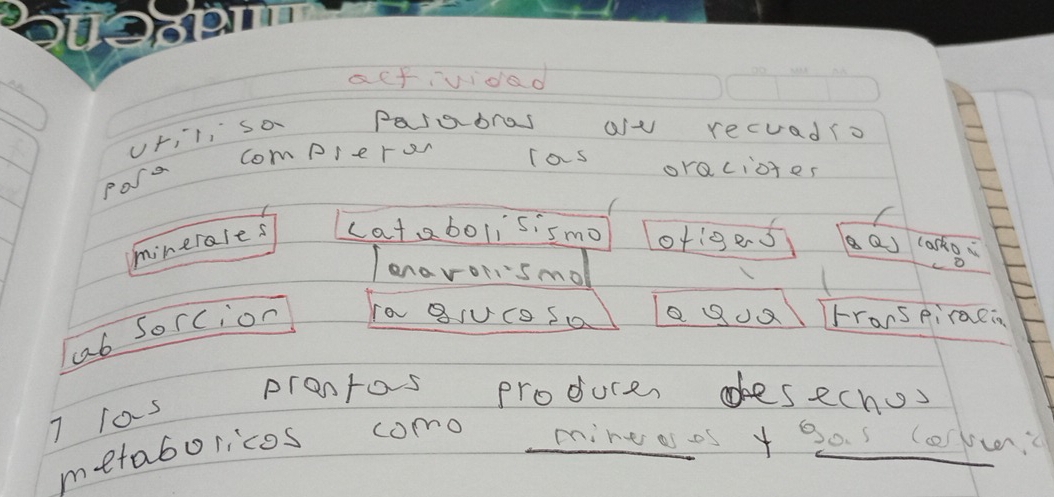 actividad
utilisa palabras del recuadro
para completar las oraciones
minerales catabolisismo otigens gas carboni
co
anavolismo
absorcion la glucosa agua transpiracin
1 las plantas producen desechos
metabolicos como minerales y gas carbonic